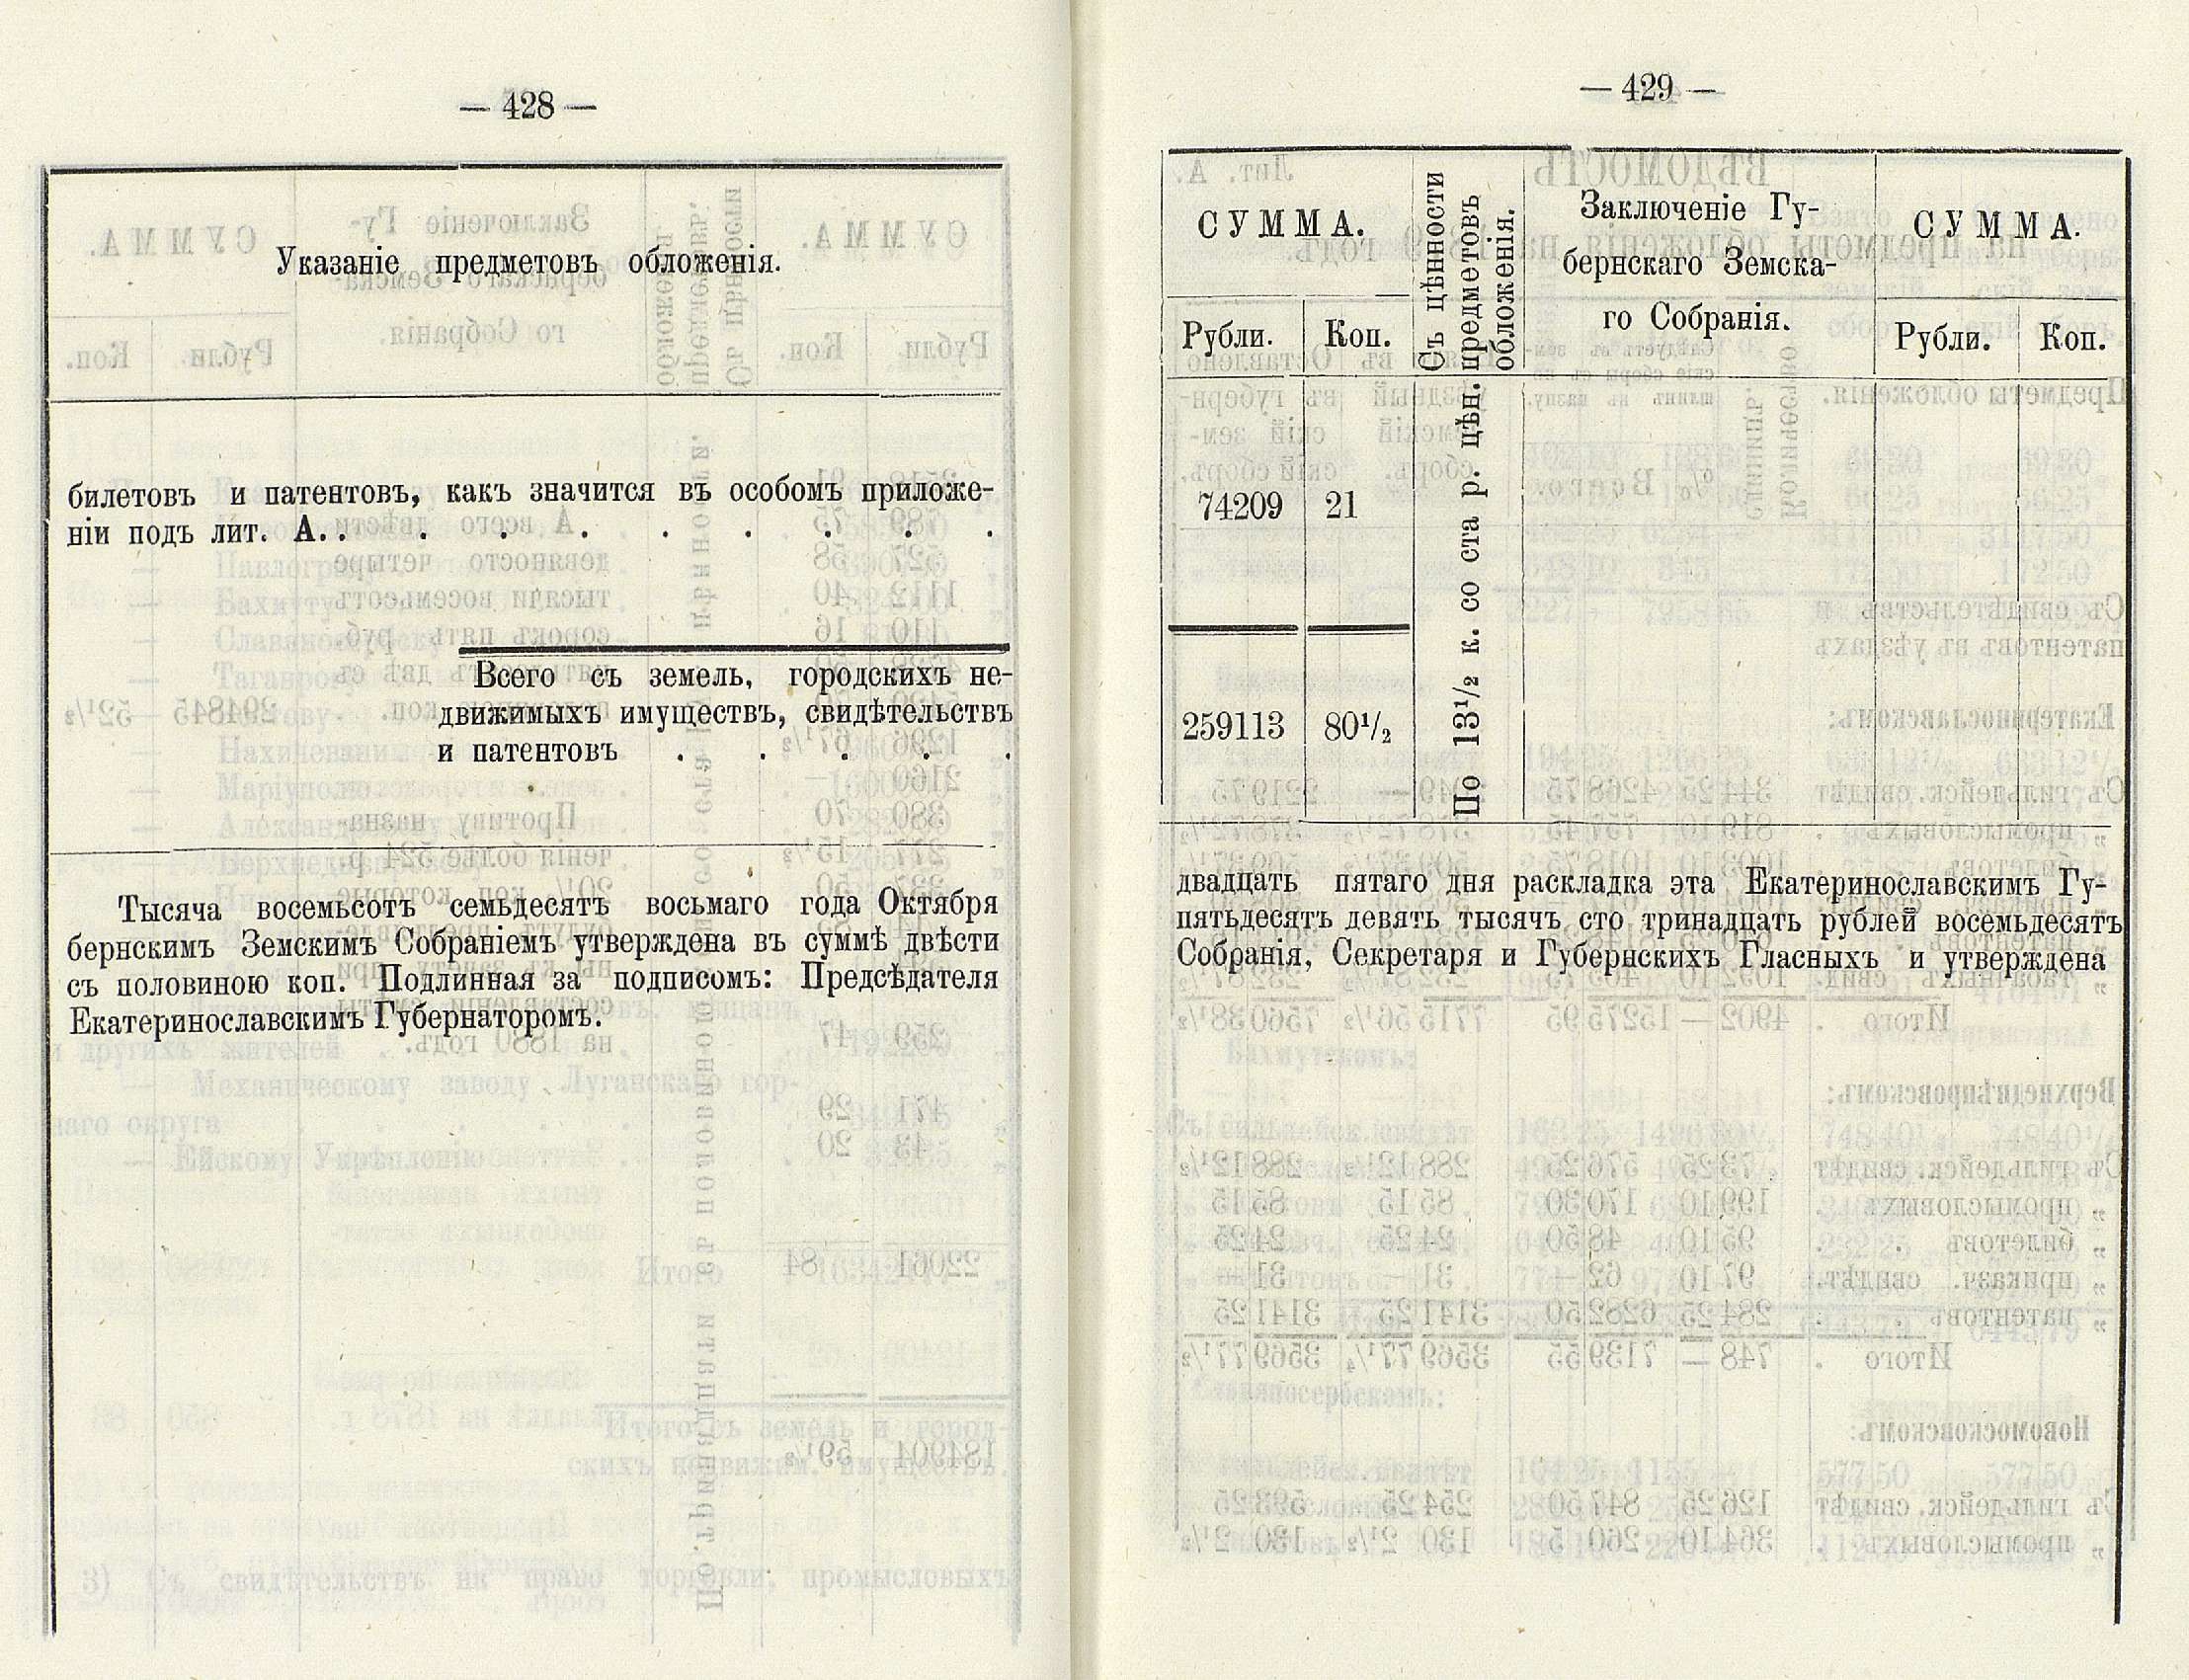 — 428 —
Указаніе предметовъ обложенія.
билетовъ и патентовъ, какъ значится въ особомъ приложе-
ніи подъ лит. А. . . . . . . . . .
Всего съ земель, городскихъ не-
движимыхъ имуществъ, свидѣтельствъ
и патентовъ . . . . .
Тысяча восемьсотъ семьдесятъ восьмаго года Октября
бернскимъ Земскимъ Собраніемъ утверждена въ суммѣ двѣсти
съ половиною коп. Подлинная за подписомъ: Предсѣдателя
Екатеринославскимъ Губернаторомъ.
— 429 —
СУММА.
Рубли. Коп.
Съ цѣнности
предметовъ
обложенія.
Заключеніе Гу-
бернскаго Земска-
го Собранія.
СУММА.
Рубли. Коп.
74209 21
259113 80¹/₂
По 13¹/₂ к. со ста р. цѣн.
двадцать пятаго дня раскладка эта Екатеринославскимъ Гу-
пятьдесятъ девять тысячъ сто тринадцать рублей восемьдесятъ
Собранія, Секретаря и Губернскихъ Гласныхъ и утверждена